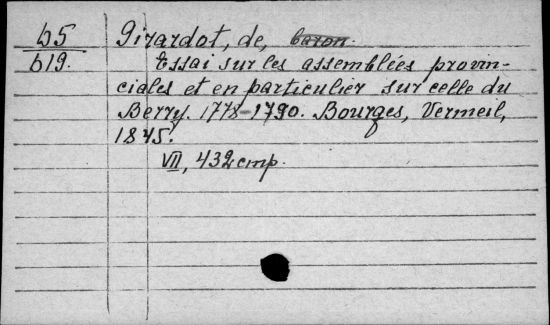 55 Girardot, de, baron.
619. Essai sur les assemblées provin-
ciales et en particulier sur celle du
Berry. 1778-1790. Bourges, Vermeil,
1845.
VII, 432 cmp.